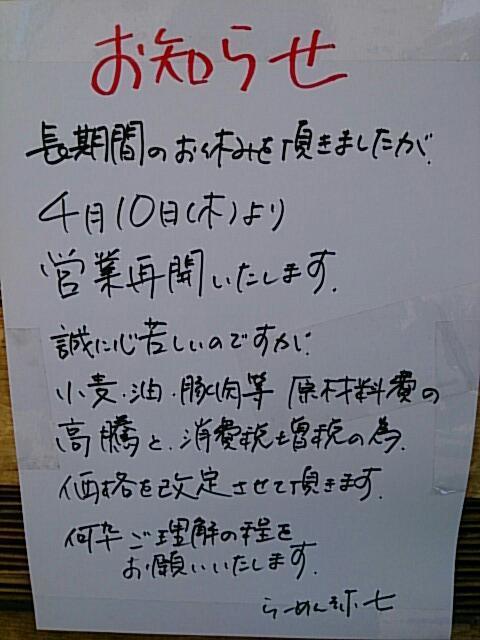 お知らせ
長期間のお休みを頂きましたが、
4月10日(木)より
営業再開いたします。
誠に心苦しいのですが、
小麦・油・豚肉等 原材料費の
高騰と、消費税増税の為、
価格を改定させて頂きます。
何卒ご理解の程を
お願いいたします。
らーめん弥七